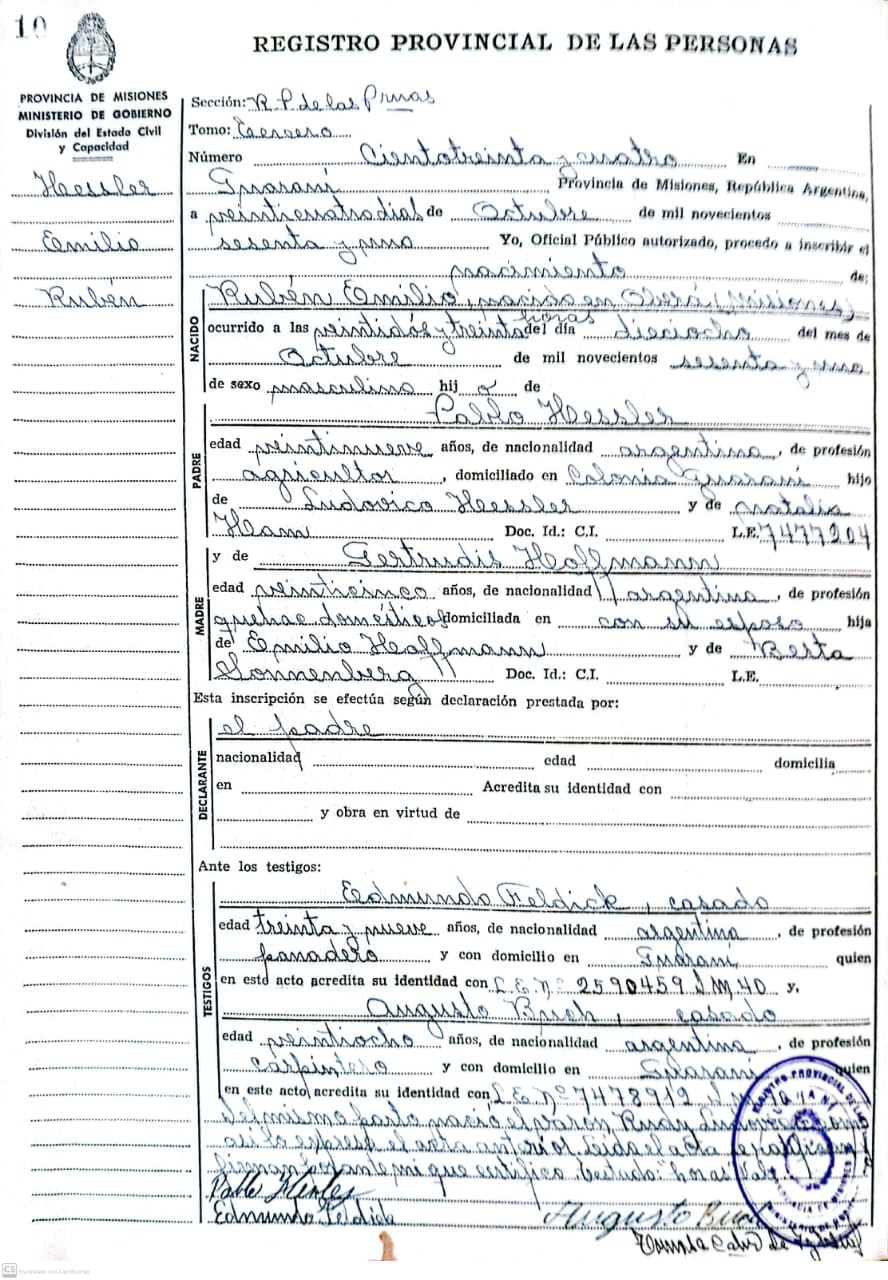 10
REGISTRO PROVINCIAL DE LAS PERSONAS
PROVINCIA DE MISIONES
MINISTERIO DE GOBIERNO
División del Estado Civil
y Capacidad
Hessler
Emilio
Rubén
Sección: R. P. de las Prnas
Tomo: Tercero
Número Cientotreinta y cuatro En
Guaraní Provincia de Misiones, República Argentina,
a veinticuatro dias de Octubre de mil novecientos
sesenta y uno Yo, Oficial Público autorizado, procedo a inscribir el
nacimiento de:
NACIDO
Rubén Emilio, nacido en Oberá (Misiones)
horas
ocurrido a las veintidós y treinta del día dieciocho del mes de
Octubre de mil novecientos sesenta y uno
de sexo masculino hij o de
PADRE
Pablo Hessler
edad veintinueve años, de nacionalidad argentina, de profesión
agricultor, domiciliado en Colonia Guaraní hijo
de Ludovico Hessler y de Natalia
Ham Doc. Id.: C.I. L.E. 7477204
MADRE
y de Gertrudis Hoffmann
edad veinticinco años, de nacionalidad argentina, de profesión
quehac domésticos domiciliada en con su esposo hija
de Emilio Hoffmann y de Berta
Sonnenberg Doc. Id.: C.I. L.E.
Esta inscripción se efectúa según declaración prestada por:
DECLARANTE
el padre
nacionalidad edad domicilia
en Acredita su identidad con
y obra en virtud de
Ante los testigos:
TESTIGOS
Edmundo Feldick, casado
edad treinta y nueve años, de nacionalidad argentina, de profesión
panadero y con domicilio en Guaraní, quien
en este acto acredita su identidad con L.E. Nº 2590459 D.M. 40 y,
Augusto Buch, casado
edad veintiocho años, de nacionalidad argentina, de profesión
carpintero y con domicilio en Guaraní quien
en este acto acredita su identidad con L.E. Nº 7478912
Del mismo parto nació el varón, Rudy Ludovico
así lo expresa el acta anterior. Leida el acta
firman por ante mi que certifico. Testado: "horas" Vale
Pablo Hessler
Edmundo Feldick Augusto Buch
REGISTRO PROVINCIAL DE LAS
GUARANI
CS Escaneado con CamScanner